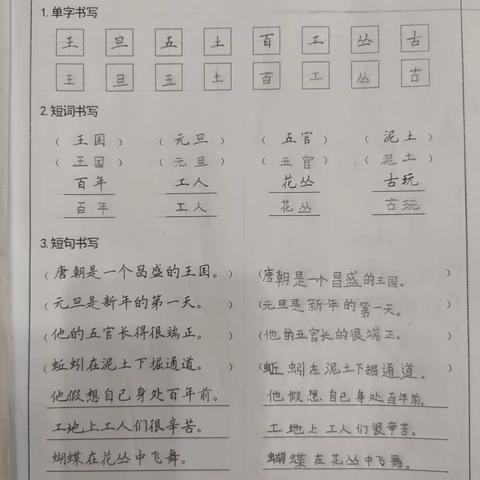 1.单字书写
王 旦 五 土 百 工 丛 古
王 旦 五 土 百 工 丛 古
2.短词书写
（王国） （元旦） （五官） （泥土）
（王国） （元旦） （五官） （泥土）
百年 工人 花丛 古玩
百年 工人 花丛 古玩
3.短句书写
（唐朝是一个昌盛的王国。） （唐朝是一个昌盛的王国。）
（元旦是新年的第一天。） （元旦是新年的第一天。）
（他的五官长得很端正。） （他的五官长的很端正。）
（蚯蚓在泥土下掘通道。） （蚯蚓在泥土下掘通道。）
他假想自己身处百年前。 他假想自己身处百年前。
工地上工人们很辛苦。 工地上工人们很辛苦。
蝴蝶在花丛中飞舞。 蝴蝶在花丛中飞舞。